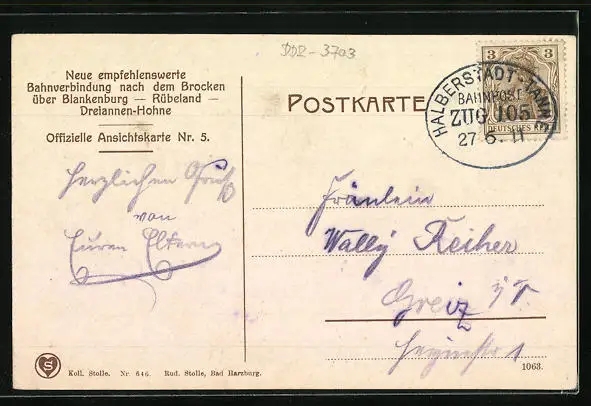 DDR-3703
Neue empfehlenswerte
Bahnverbindung nach dem Brocken
über Blankenburg — Rübeland —
Dreiannen-Hohne
Offizielle Ansichtskarte Nr. 5.
POSTKARTE
3 3
DEUTSCHES REICH
HALBERSTADT-TANNE
BAHNPOST
ZUG 105
27 6. 11
Herzlichen Gruß
von
Euren Eltern
Fräulein
Wally Reiher
Greiz
1
S
Koll. Stolle. Nr. 646. Rud. Stolle, Bad Harzburg.
1063.